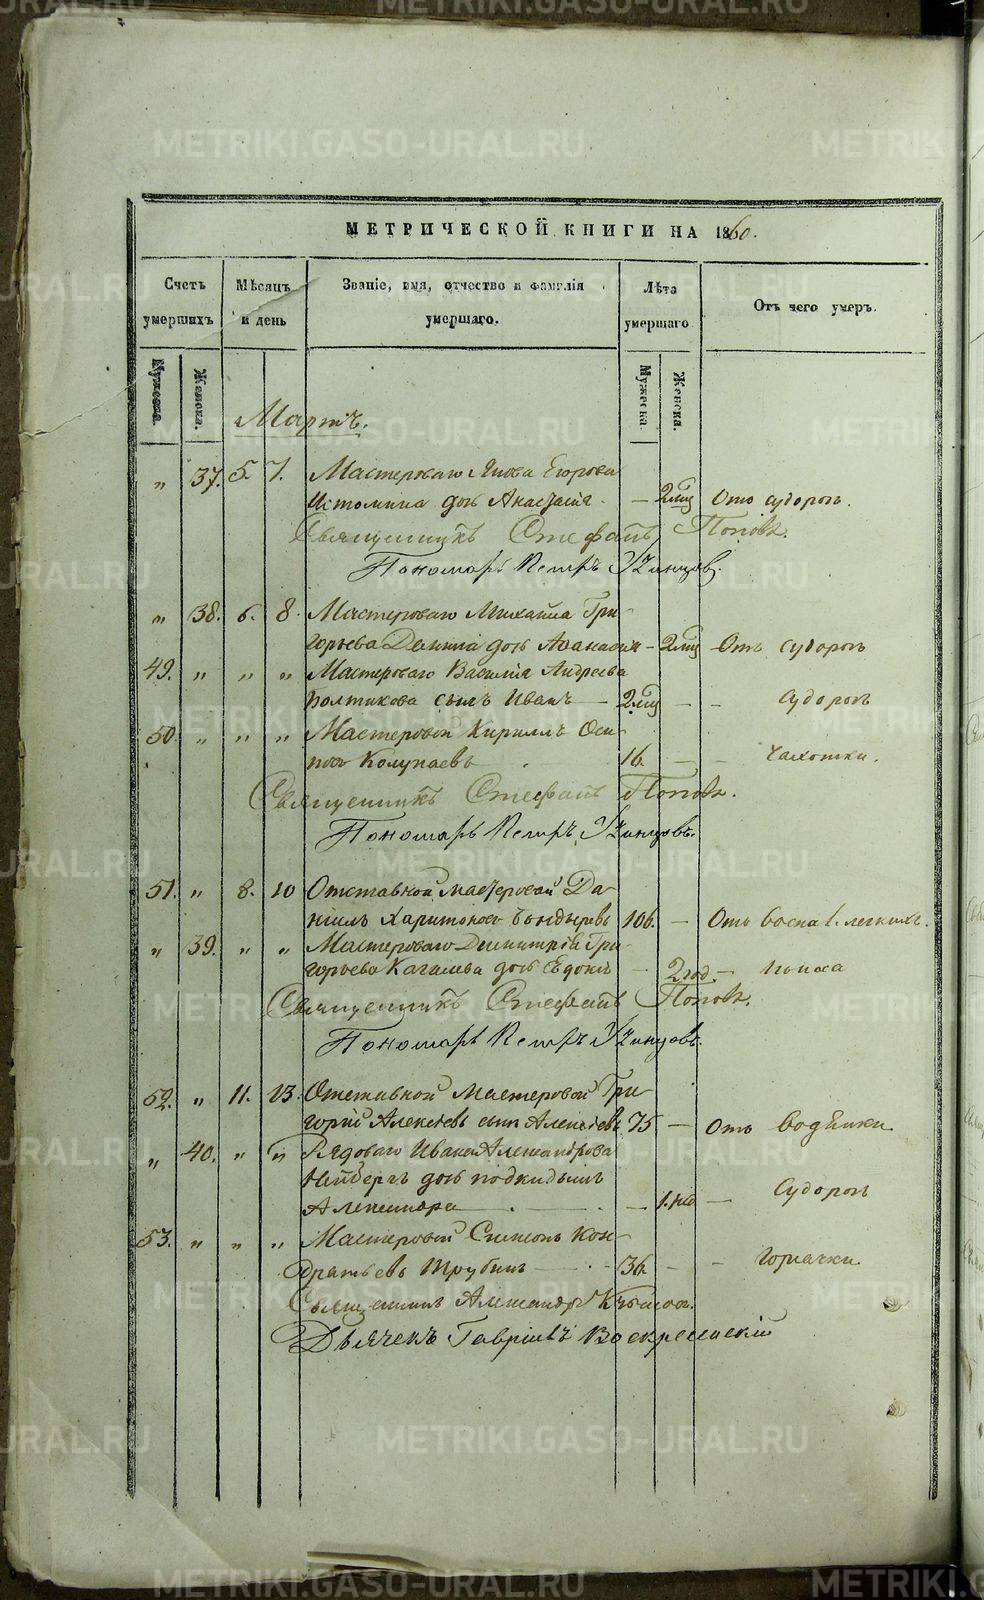 METRIKI.GASO-URAL.RU
МЕТРИЧЕСКОЙ КНИГИ НА 1860.
Счетъ умершихъ
Мѣсяцъ и день
Званіе, имя, отчество и фамилія умершаго.
Лѣта умершаго
Отъ чего умеръ.
Мужеска.
Женска.
Мужеска.
Женска.
Мартъ.
„ 37. 5. 7. Мастероваго Якова Егорова
Истомина дочь Анастасія — 2 мѣс Отъ судорогъ.
Священникъ Стефанъ Поповъ.
Пономарь Петръ
„ 38. 6. 8. Мастероваго Михаила Гри-
горьева дочь — 2 мѣс — Отъ судорогъ
49. „ „ „ Мастероваго Василія Андреева
сынъ Иванъ — 2 мѣс — — Судорогъ
50 „ „ „ Мастеровой Кириллъ Оси-
повъ Колупаевъ 16. — — Чахотки.
Священникъ Стефанъ Поповъ.
Пономарь Петръ
51. „ 8. 10 Отставной мастеровой Да-
ніилъ Харитоновъ 106. — Отъ воспа. легкихъ.
„ 39. „ „ Мастероваго Димитрія Гри-
горьева дочь — 2 год. — Поноса
Священникъ Стефанъ Поповъ.
Пономарь Петръ
52. „ 11. 13. Отставной Мастеровой Гри-
горій Алексѣевъ сынъ Алексѣевъ 75 — Отъ водянки.
„ 40. „ „ Рядоваго Ивана Александрова
дочь подкидышъ
Александра — 1. нед — Судорогъ
53. „ „ „ Мастеровой Симеонъ Кон-
дратьевъ Трубинъ — 36. — — горячки.
Священникъ Александръ
Дьячекъ Гавріилъ Воскресенскій